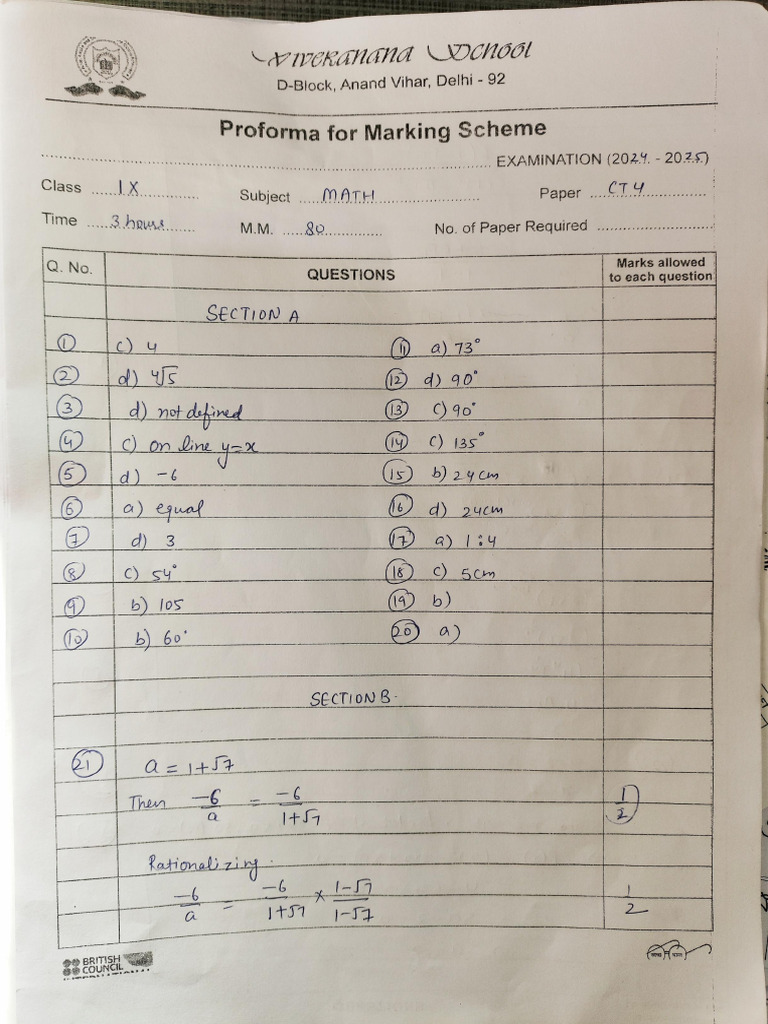 Vivekanand School
D-Block, Anand Vihar, Delhi - 92
Proforma for Marking Scheme
EXAMINATION (2024 - 2025)
Class IX Subject MATH Paper CT4
Time 3 hours M.M. 80 No. of Paper Required
Q. No. QUESTIONS Marks allowed to each question
SECTION A
① c) 4 ⑪ a) 73°
② d) 4√5 ⑫ d) 90°
③ d) not defined ⑬ c) 90°
④ c) on line y=x ⑭ c) 135°
⑤ d) -6 ⑮ b) 24cm
⑥ a) equal ⑯ d) 24cm
⑦ d) 3 ⑰ a) 1:4
⑧ c) 54° ⑱ c) 5cm
⑨ b) 105 ⑲ b)
⑩ b) 60° ⑳ a)
SECTION B.
㉑ a = 1+√7
Then -6/a = -6/1+√7 1/2
Rationalizing.
-6/a = -6/1+√7 × 1-√7/1-√7 1/2
BRITISH
COUNCIL
INTERNATIONAL